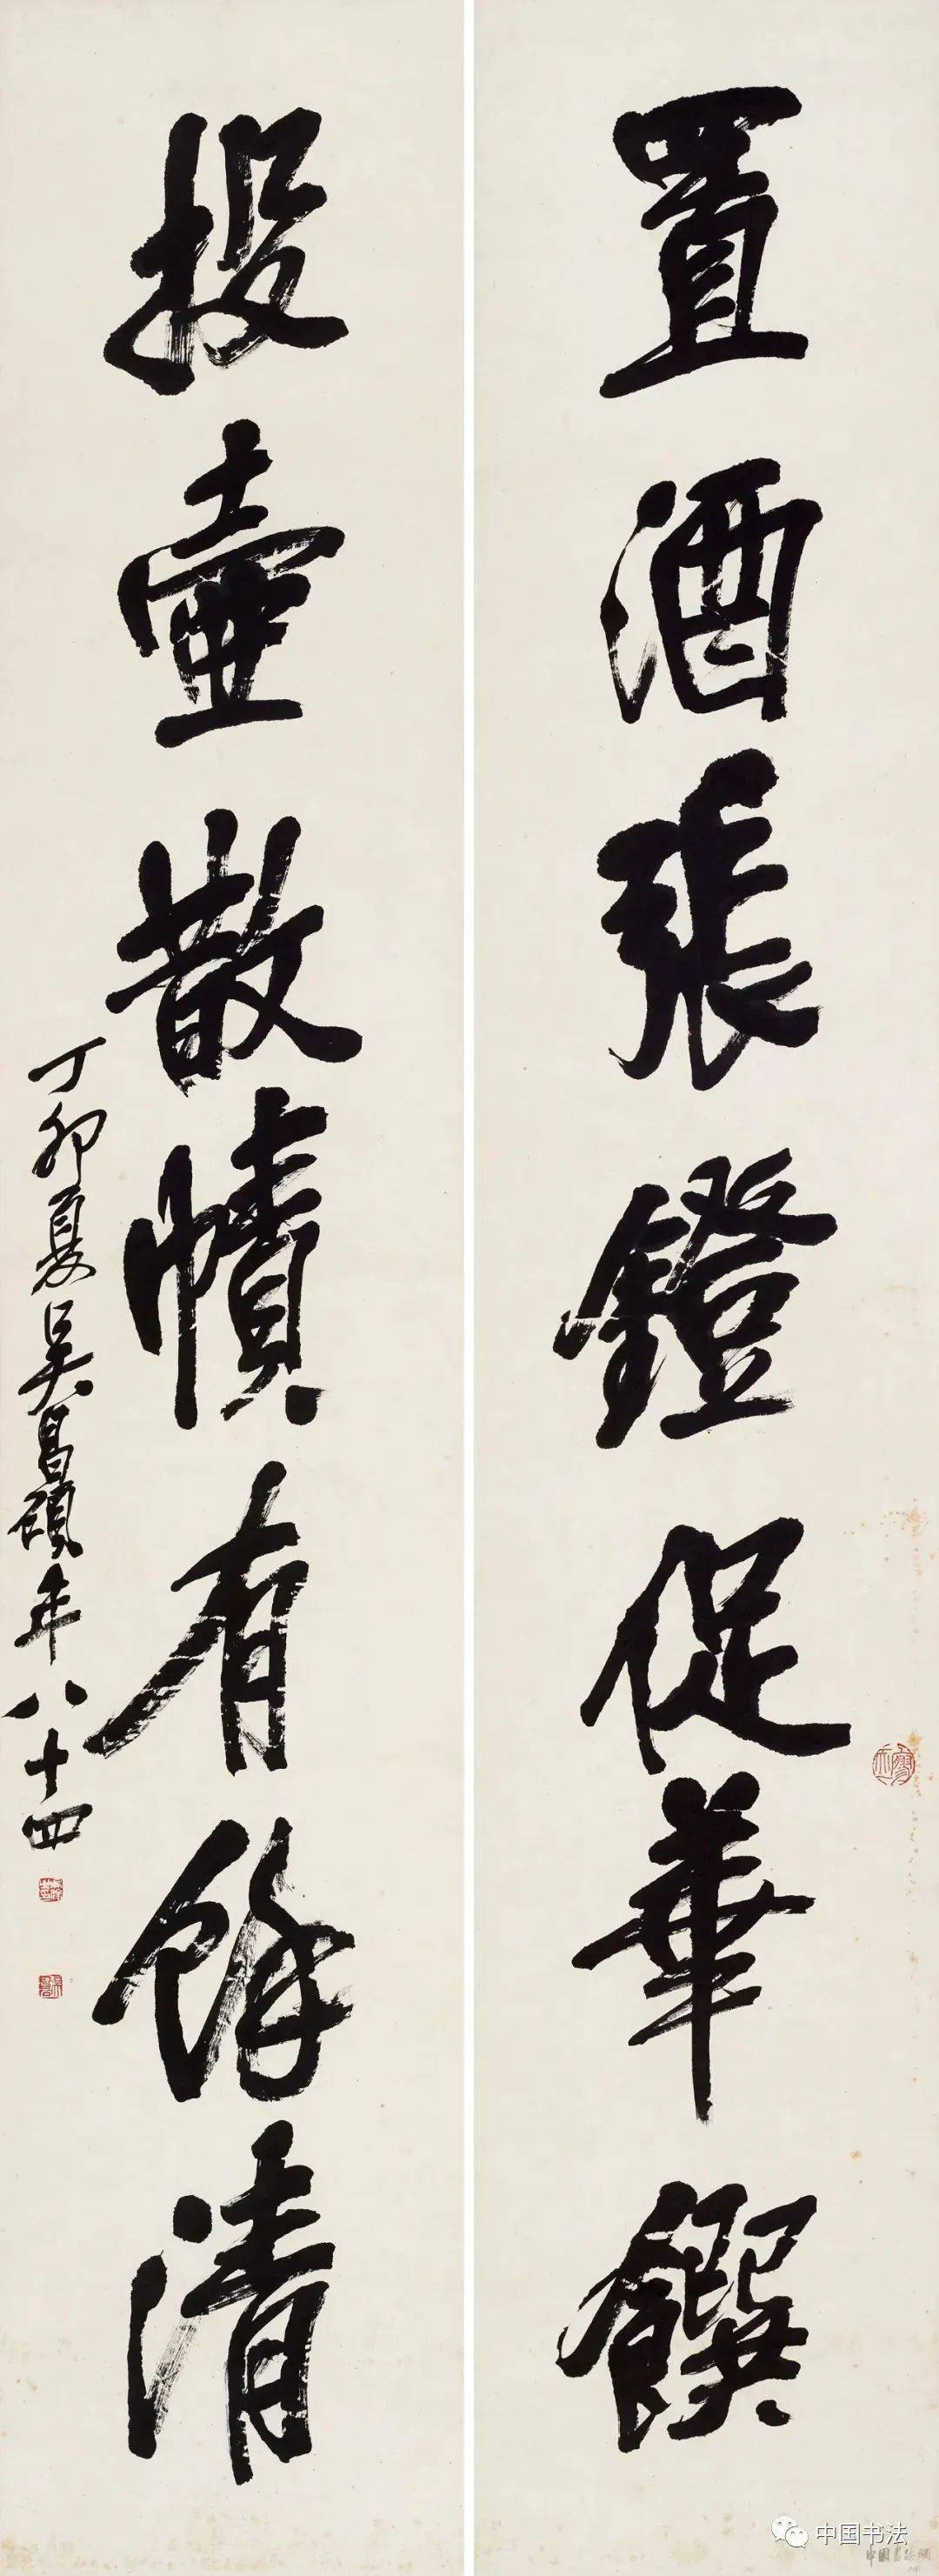 置酒張鐙促華饌
投壺散帙有餘清
丁卯夏吳昌碩年八十四
中国书法